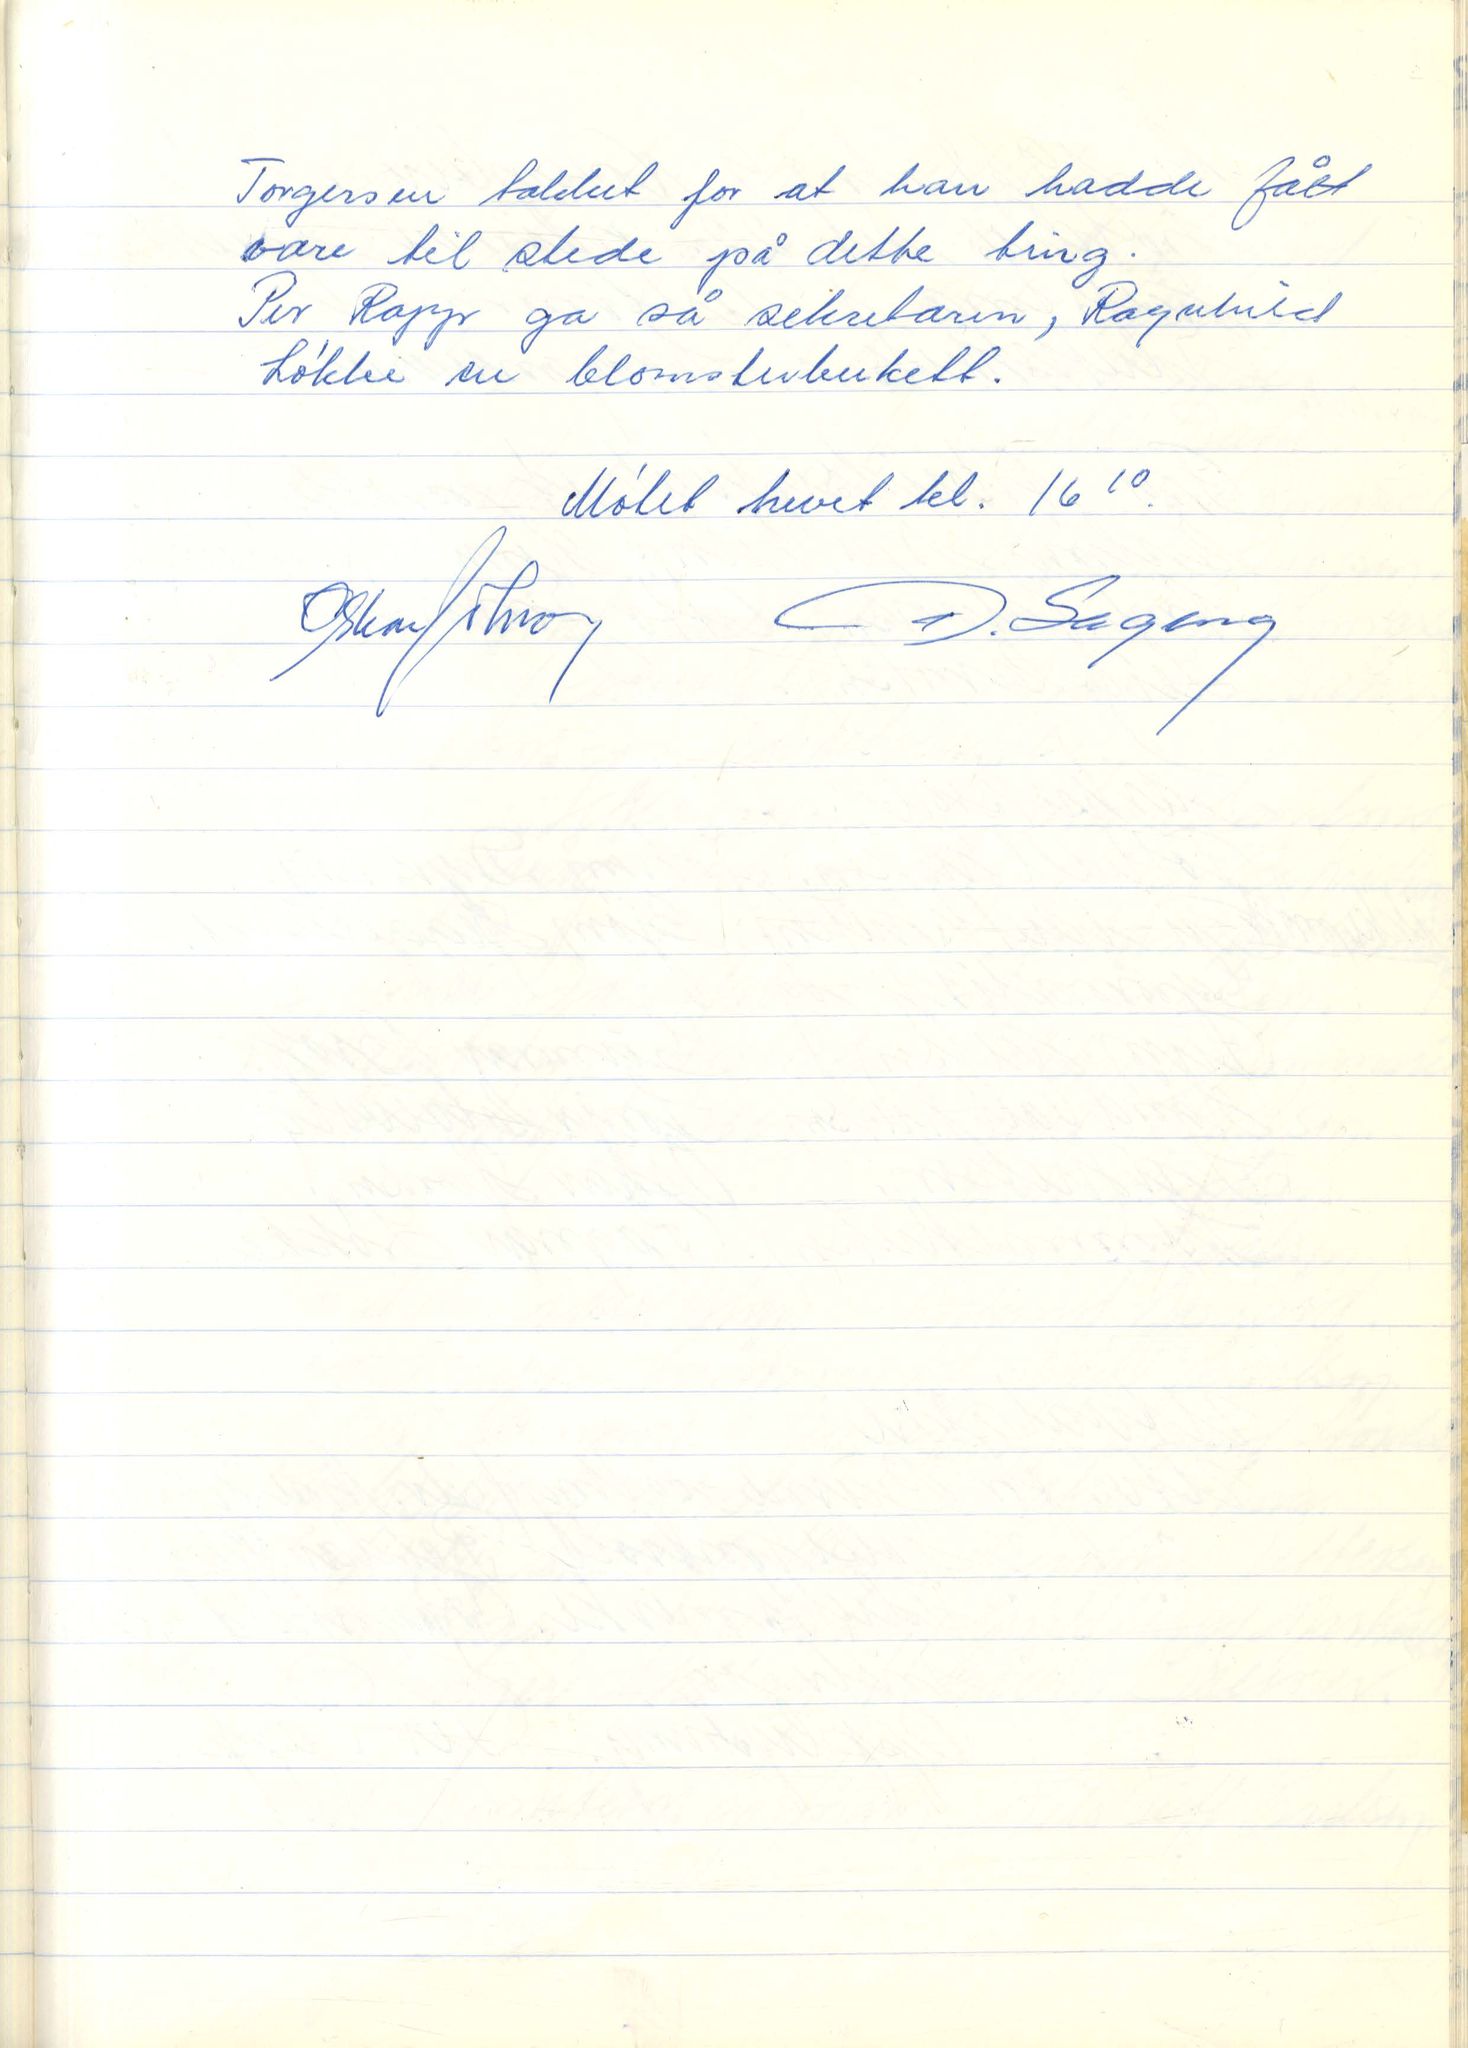 Torgersen takket for at han hadde fått
være til stede på dette ting.
Per Rapp ga så sekretæren, Ragnhild
Løkke en blomsterbukett.
Møtet hevet kl. 16 10.
Oskar
D. Sageng